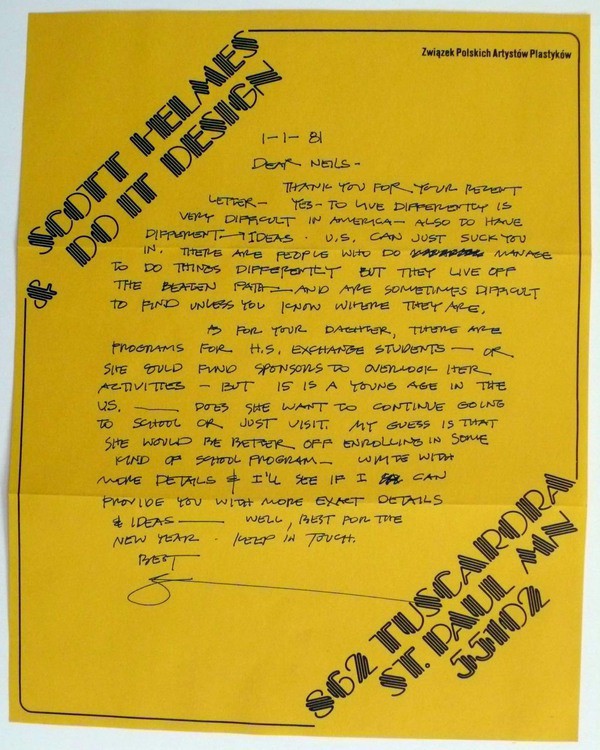 SCOTT HELMES
& DO IT DESIGN
Związek Polskich Artystów Plastyków
1-1-81
DEAR NEILS-
THANK YOU FOR YOUR RECENT
LETTER- YES- TO LIVE DIFFERENTLY IS
VERY DIFFICULT IN AMERICA- ALSO TO HAVE
DIFFERENT IDEAS. U.S. CAN JUST SUCK YOU
IN. THERE ARE PEOPLE WHO DO MANAGE
TO DO THINGS DIFFERENTLY BUT THEY LIVE OFF
THE BEATEN PATH- AND ARE SOMETIMES DIFFICULT
TO FIND UNLESS YOU KNOW WHERE THEY ARE.
AS FOR YOUR DAGHTER, THERE ARE
PROGRAMS FOR H.S. EXCHANGE STUDENTS- OR
SHE COULD FIND SPONSORS TO OVERLOOK HER
ACTIVITIES - BUT 15 IS A YOUNG AGE IN THE
U.S. - DOES SHE WANT TO CONTINUE GOING
TO SCHOOL OR JUST VISIT. MY GUESS IS THAT
SHE WOULD BE BETTER OFF ENROLLING IN SOME
KIND OF SCHOOL PROGRAM- WRITE WITH
MORE DETAILS & I'LL SEE IF I CAN
PROVIDE YOU WITH MORE EXACT DETAILS
& IDEAS- WELL, BEST FOR THE
NEW YEAR. KEEP IN TOUCH.
BEST
862 TUSCARORA
ST. PAUL MN
55102